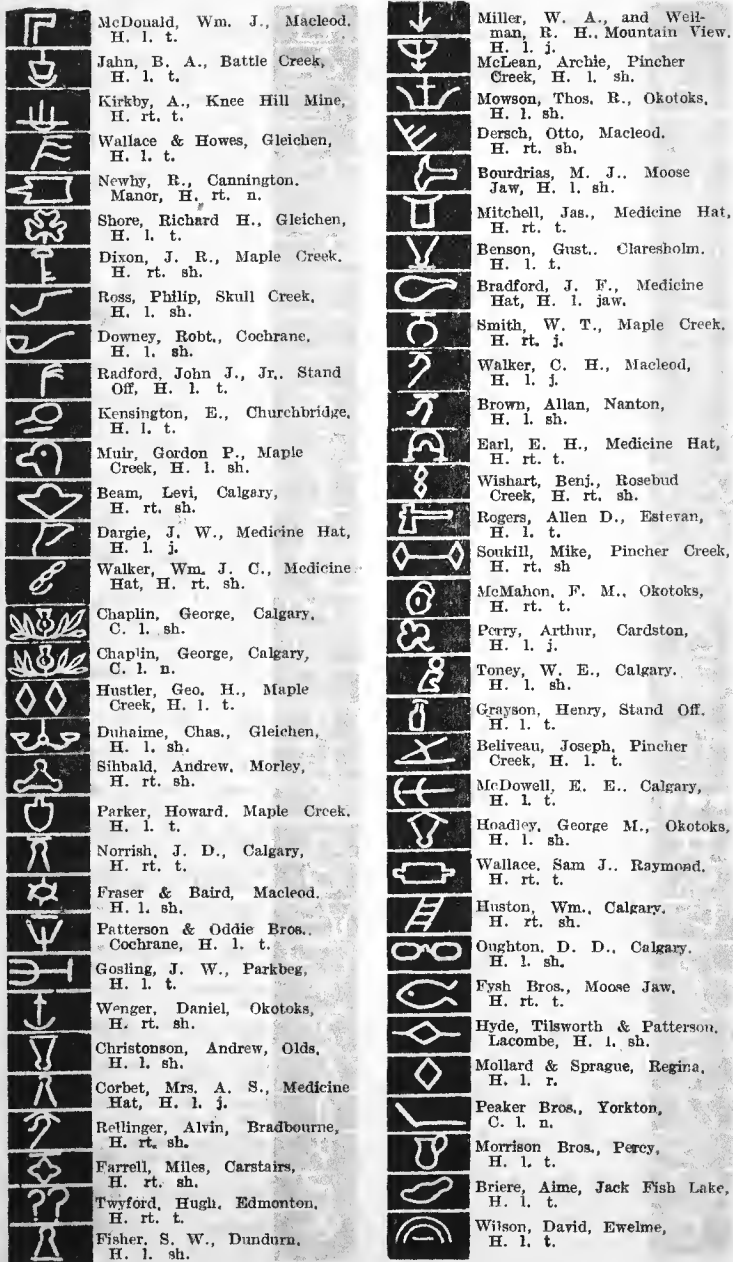 McDonald, Wm. J., Macleod.
H. l. t.
Jahn, B. A., Battle Creek,
H. l. t.
Kirkby, A., Knee Hill Mine,
H. rt. t.
Wallace & Howes, Gleichen,
H. l. t.
Newby, R., Cannington.
Manor, H. rt. n.
Shore, Richard H., Gleichen,
H. l. t.
Dixon, J. R., Maple Creek.
H. rt. sh.
Ross, Philip, Skull Creek,
H. l. sh.
Downey, Robt., Cochrane,
H. l. sh.
Radford, John J., Jr.. Stand
Off, H. l. t.
Kensington, E., Churchbridge,
H. l. t.
Muir, Gordon P., Maple
Creek, H. l. sh.
Beam, Levi, Calgary,
H. rt. sh.
Dargie, J. W., Medicine Hat,
H. l. j.
Walker, Wm. J. C., Medicine
Hat, H. rt. sh.
Chaplin, George, Calgary,
C. l. sh.
Chaplin, George, Calgary,
C. l. n.
Hustler, Geo. H., Maple
Creek, H. l. t.
Duhaime, Chas., Gleichen,
H. l. sh.
Sibbald, Andrew, Morley,
H. rt. sh.
Parker, Howard. Maple Creek.
H. l. t.
Norrish, J. D., Calgary,
H. rt. t.
Fraser & Baird, Macleod.
H. l. sh.
Patterson & Oddie Bros..
Cochrane, H. l. t.
Gosling, J. W., Parkbeg,
H. l. t.
Wenger, Daniel, Okotoks,
H. rt. sh.
Christonson, Andrew, Olds,
H. l. sh.
Corbet, Mrs. A. S., Medicine
Hat, H. l. j.
Rellinger, Alvin, Bradbourne,
H. rt. sh.
Farrell, Miles, Carstairs,
H. rt. sh.
??
Twyford, Hugh, Edmonton,
H. rt. t.
Fisher, S. W., Dundurn,
H. l. sh.
Miller, W. A., and Well-
man, R. H., Mountain View.
H. l. j.
McLean, Archie, Pincher
Creek, H. l. sh.
Mowson, Thos. R., Okotoks,
H. l. sh.
Dersch, Otto, Macleod.
H. rt. sh.
Bourdrias, M. J.. Moose
Jaw, H. l. sh.
Mitchell, Jas., Medicine Hat,
H. rt. t.
Benson, Gust.. Claresholm.
H. l. t.
Bradford, J. F., Medicine
Hat, H. l. jaw.
Smith, W. T., Maple Creek.
H. rt. j.
Walker, C. H., Macleod,
H. l. j.
Brown, Allan, Nanton,
H. l. sh.
Earl, E. H., Medicine Hat,
H. rt. t.
Wishart, Benj., Rosebud
Creek, H. rt. sh.
Rogers, Allen D., Estevan,
H. l. t.
Soukill, Mike, Pincher Creek,
H. rt. sh
McMahon, F. M., Okotoks,
H. rt. t.
Perry, Arthur, Cardston,
H. l. j.
Toney, W. E., Calgary.
H. l. sh.
Grayson, Henry, Stand Off.
H. l. t.
Beliveau, Joseph, Pincher
Creek, H. l. t.
McDowell, E. E.. Calgary,
H. l. t.
Hoadley, George M., Okotoks,
H. l. sh.
Wallace, Sam J.. Raymond.
H. rt. t.
Huston, Wm., Calgary.
H. rt. sh.
Oughton, D. D., Calgary.
H. l. sh.
Fysh Bros., Moose Jaw.
H. rt. t.
Hyde, Tilsworth & Patterson,
Lacombe, H. l. sh.
Mollard & Sprague, Regina,
H. l. r.
Peaker Bros., Yorkton,
C. l. n.
Morrison Bros., Percy,
H. l. t.
Briere, Aime, Jack Fish Lake,
H. l. t.
Wilson, David, Ewelme,
H. l. t.